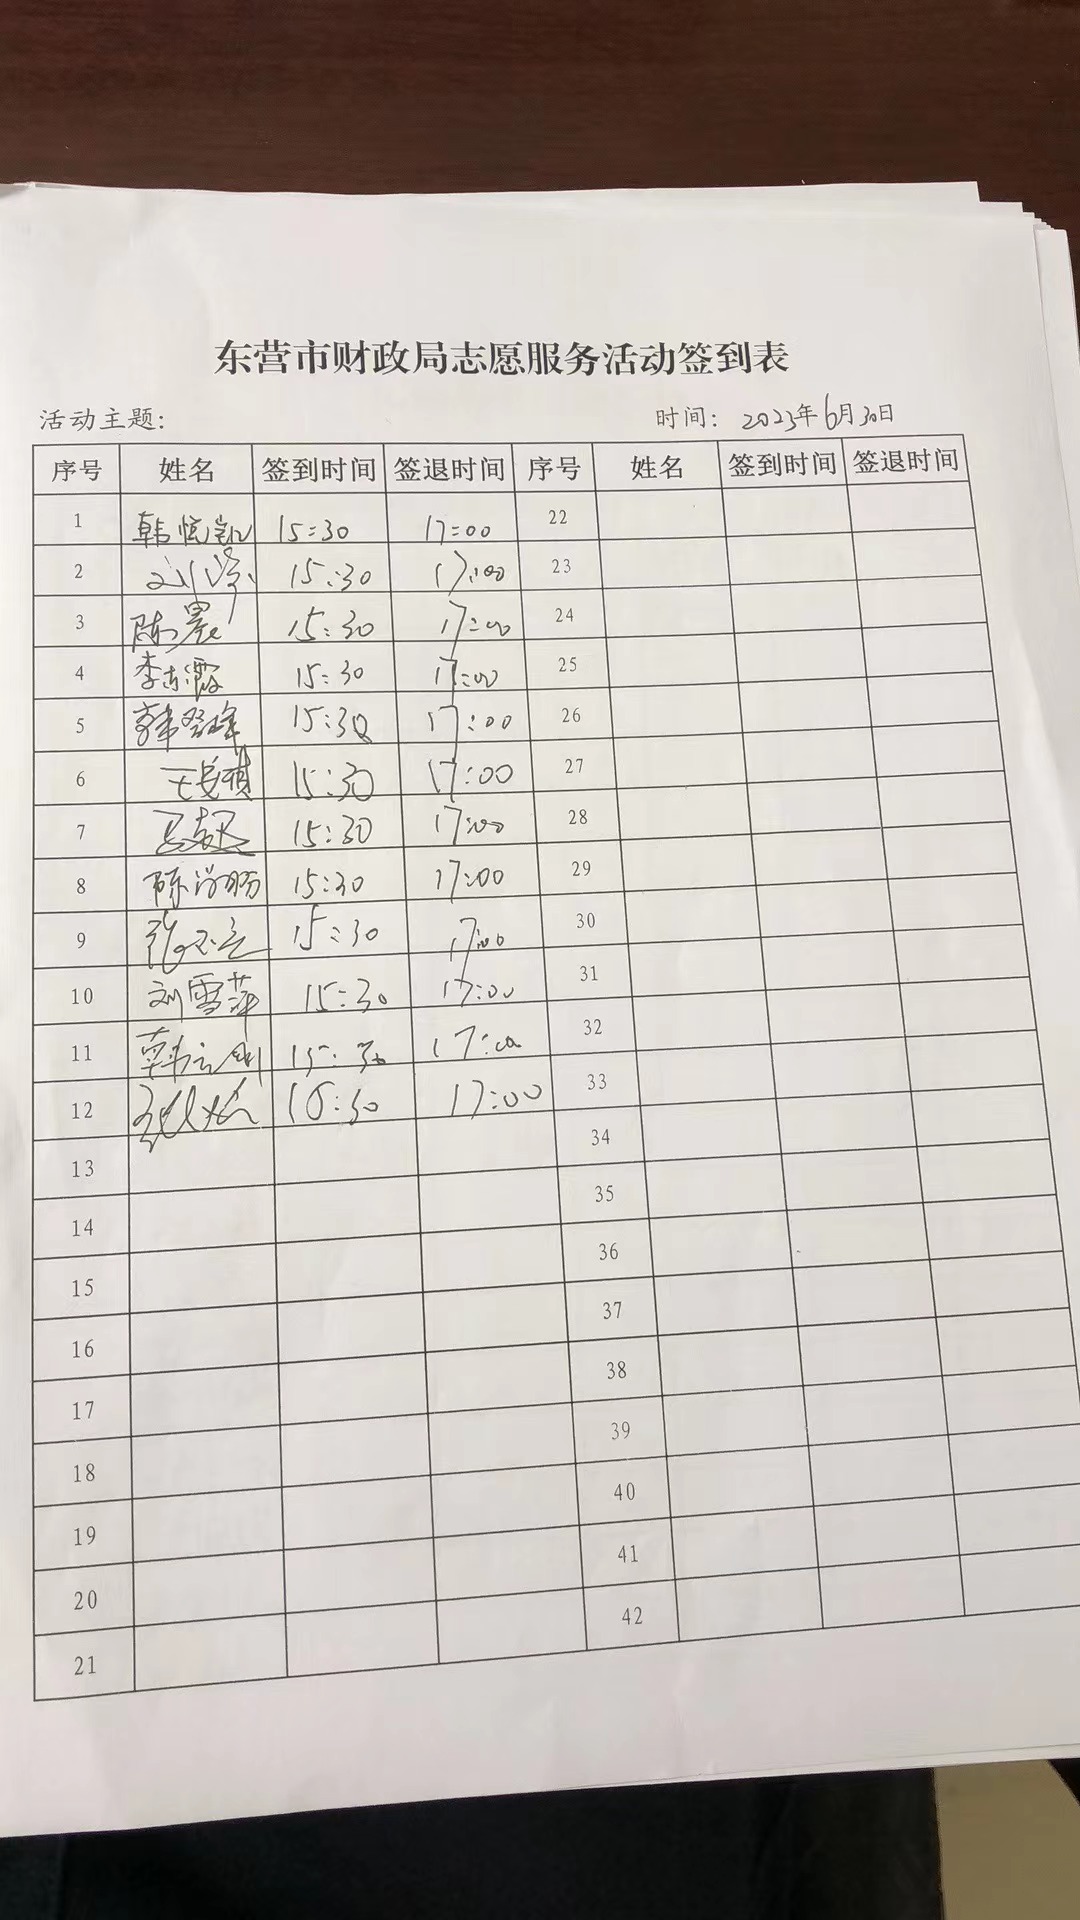 东营市财政局志愿服务活动签到表
活动主题: 时间: 2023年6月30日
序号 姓名 签到时间 签退时间 序号 姓名 签到时间 签退时间
1 15:30 17:00 22
2 15:30 17:00 23
3 陈晨 15:30 17:00 24
4 李志霞 15:30 17:00 25
5 15:30 17:00 26
6 15:30 17:00 27
7 马超 15:30 17:00 28
8 15:30 17:00 29
9 15:30 17:00 30
10 刘雪萍 15:30 17:00 31
11 15:30 17:00 32
12 17:00 33
13 34
14 35
15 36
16 37
17 38
18 39
19 40
20 41
21 42